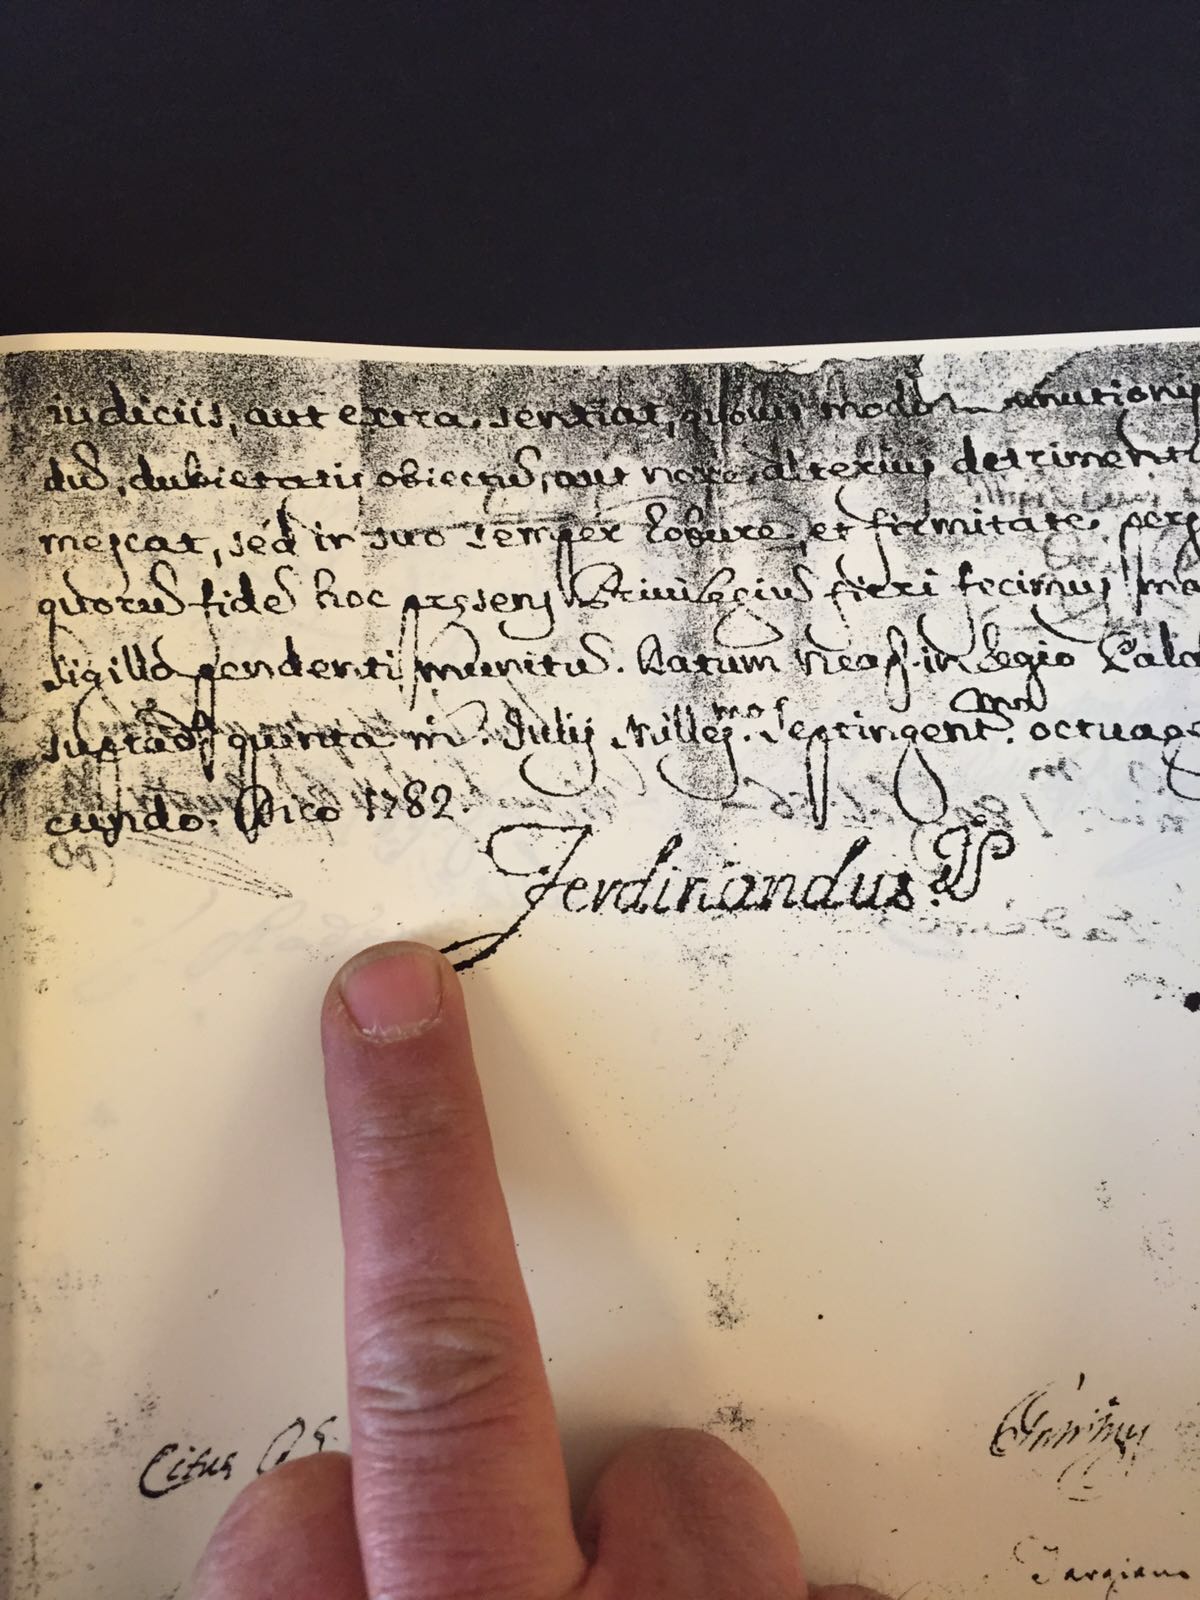 iudiciis, aut extra sentiat, quovis modo diminutionis
diũ, dubietatis obiectũ, aut noxe alterius detrimenti
mescat, séd in suo semper robure, et firmitate, pers
quorũ fidẽ hoc prẹsens Privilegiũ fieri fecimus, ma
sigillo pendenti munitũ. Datum Neap. in Regio Pala
quinta m. Julij Milles.mo Septingent.mo octuages
cundo. Dico 1782.
Ferdinandus.
Citus
Targiani